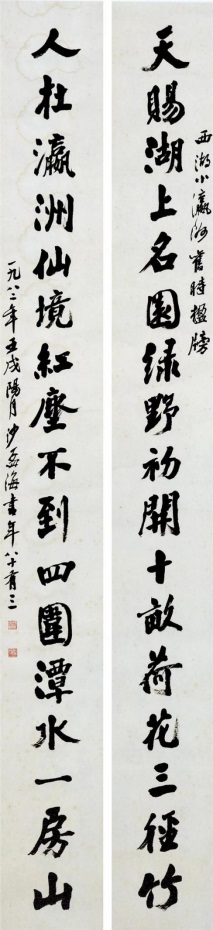 西湖小瀛洲舊時楹牓
天賜湖上名園綠野初開十畝荷花三徑竹
人杜瀛洲仙境紅塵不到四圍潭水一房山
一九八二年壬戌陽月沙孟海書年八十有三